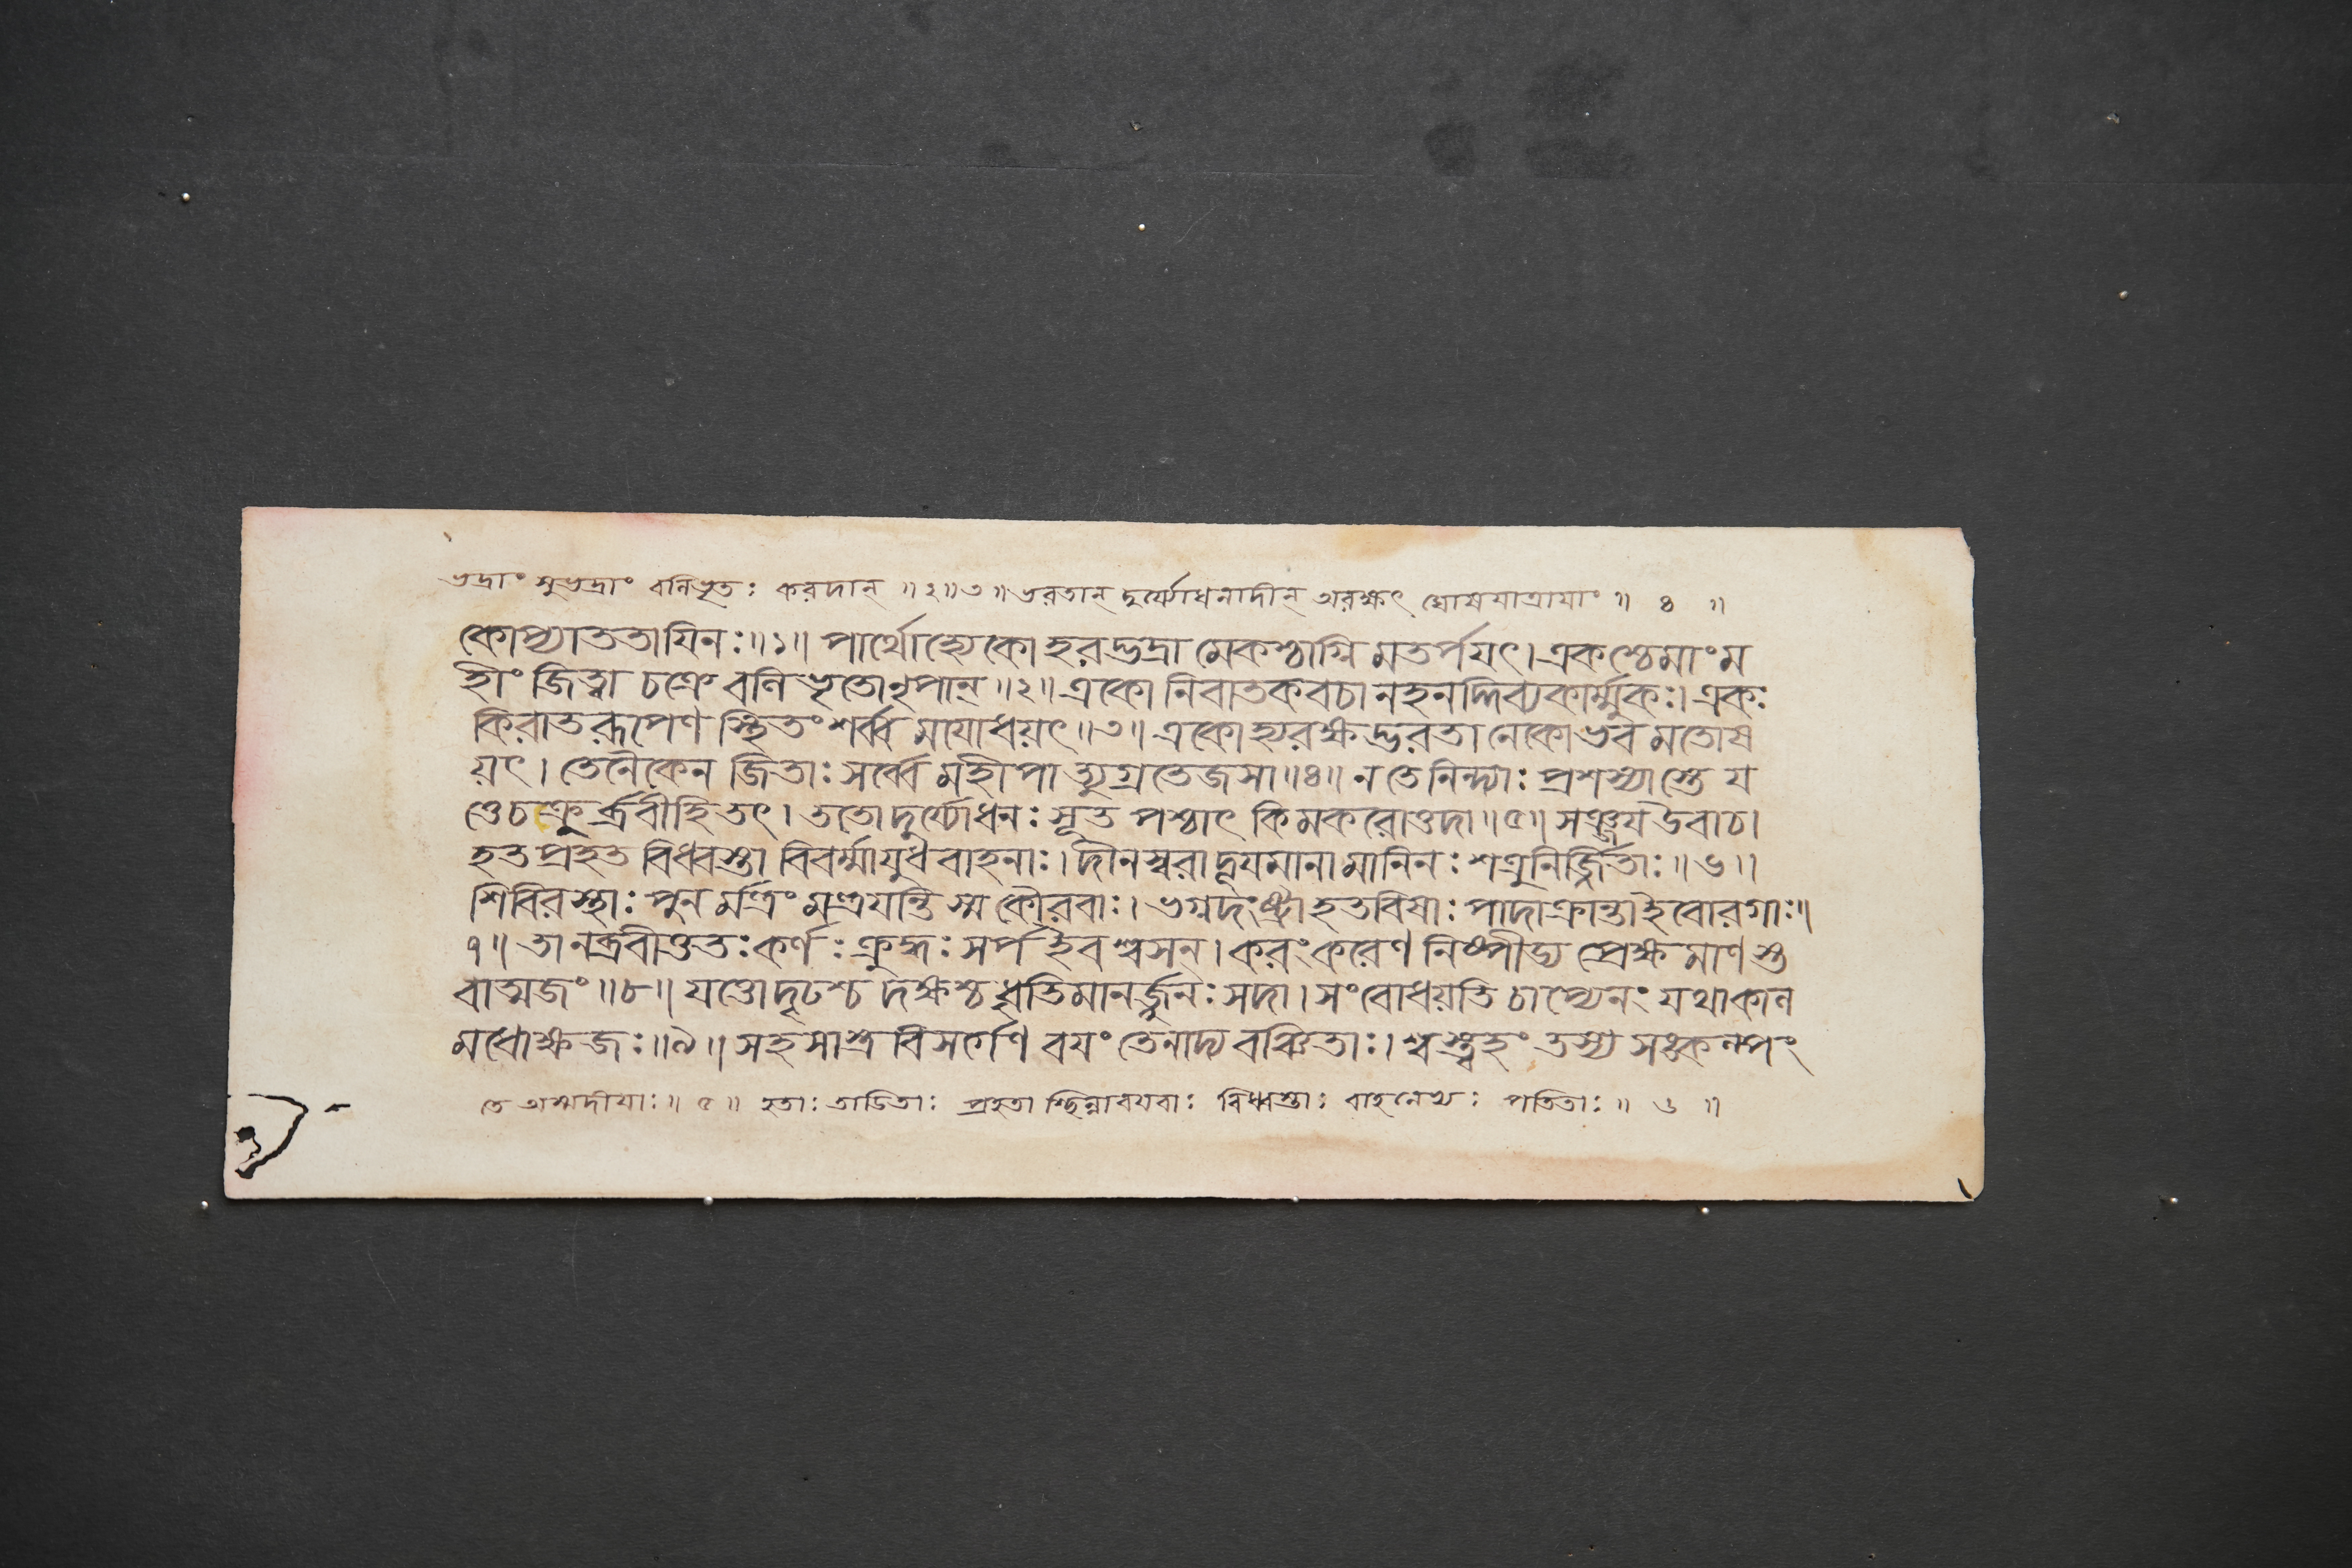 ভদ্রাং সুভদ্রাং বলিভৃতঃ করদান্ ॥২॥৩॥ ভরতান্ দুর্য্যোধনাদীন্ অরক্ষৎ ঘোষযাত্রাযাং ॥ ৪ ॥
কোপ্যাততাযিনঃ॥১॥ পার্থোহ্যেকো হরদ্ভদ্রা মেকশ্চাগ্নি মতর্পযৎ। একশ্চেমাং ম
হীং জিত্বা চক্রে বলি ভৃতোনৃপান্॥২॥ একো নিবাতকবচা নহনদ্দিব্যকার্ম্মুকঃ। একঃ
কিরাতরূপেণ স্থিতং শর্ব্ব মযোধয়ৎ॥৩॥ একোহ্যরক্ষদ্ভরতা নেকোভব মতোষ
য়ৎ। তেনৈকেন জিতাঃ সর্ব্বে মহীপা ত্যুগ্রতেজসা॥৪॥ ন তে নিন্দ্যাঃ প্রশস্যাস্তে য
ত্তেচক্রুর্ব্রবীহি তৎ। ততোদুর্য্যোধনঃ সূত পশ্চাৎ কিমকরোত্তদা॥৫॥ সঞ্জয উবাচ।
হত প্রহত বিধ্বস্তা বিবর্ম্মাযুধ বাহনাঃ। দীনস্বরাদূযমানা মানিনঃ শত্রুনির্জ্জিতাঃ॥৬॥
শিবিরস্থাঃ পুন র্মন্ত্রং মন্ত্রযন্তি স্ম কৌরবাঃ। ভগ্নদংষ্ট্রা হতবিষাঃ পাদাক্রান্তা ইবোরগাঃ॥
৭॥ তানব্রবীত্ততঃ কর্ণঃ ক্রুদ্ধঃ সর্প ইব শ্বসন্। করং করেণ নিষ্পীড্য প্রেক্ষমাণ স্ত
বাত্মজং॥৮॥ যত্তোদৃঢশ্চ দক্ষশ্চ ধৃতিমানর্জ্জুনঃ সদা। সংবোধয়তি চাপ্যেনং যথাকাল
মধোক্ষজঃ॥৯॥ সহসাস্ত্র বিসর্গেণ বযং তেনাদ্য বঞ্চিতাঃ। শ্বস্ত্বহং তস্য সঙ্কল্পং
তে অস্মদীযাঃ॥ ৫॥ হতাঃ তাডিতাঃ প্রহতা শ্ছিন্নাবযবাঃ বিধ্বস্তাঃ বাহনেভ্যঃ পাতিতাঃ॥ ৬ ॥